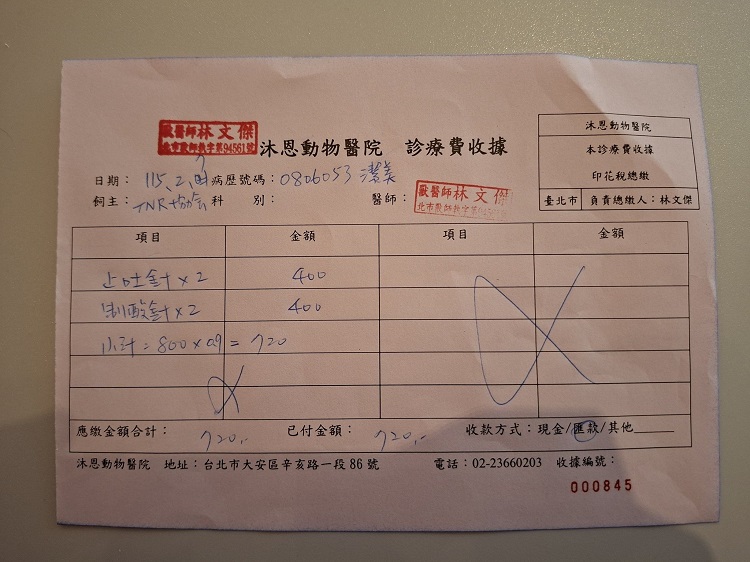 獸醫師林文傑
北市獸師執字第94561號
沐恩動物醫院 診療費收據
沐恩動物醫院
本診療費收據
印花稅總繳
臺北市 負責總繳人:林文傑
日期: 115.2. 病歷號碼: 0806053 潔美
飼主: TNR協會 科 別: 醫師: 獸醫師林文傑
項目 金額 項目 金額
止吐針×2 400
制酸針×2 400
小計=800×0.9=720
應繳金額合計: 720.- 已付金額: 720.- 收款方式:現金/匯款/其他______
沐恩動物醫院 地址:台北市大安區辛亥路一段86號 電話:02-23660203 收據編號:
000845